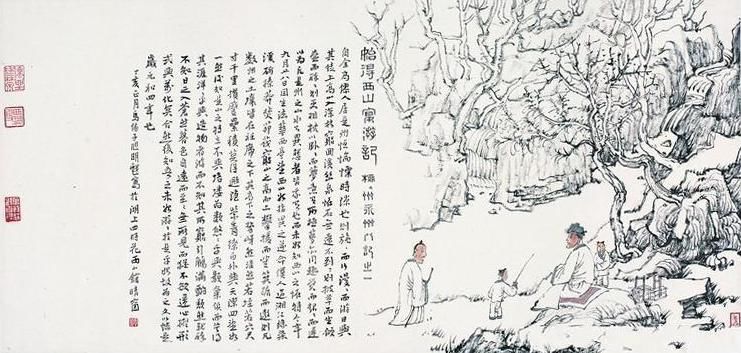 始得西山宴游記 柳州永州八記之一
自余為僇人居是州恒惴慄時隙也則施〻而行漫〻而游日與
其徒上高山入深林窮迴溪幽泉怪石無遠不到〻則披草而坐傾
壺而醉〻則更相枕以臥〻而夢意有所極夢亦同趣覺而起〻而歸
以為凡是州之山水有異態者皆我有也而未始知西山之怪特今年
九月廿八日因坐法華西亭望西山始指異之遂命僕人過湘江緣染
溪斫榛莽焚茅茷窮山之高而止攀援而登箕踞而遨則凡
數州之土壤皆在衽席之下其高下之勢岈然洼然若垤若穴尺
寸千里攢蹙累積莫得遯隱縈青繚白外與天際四望如
一然後知是山之特立不與培塿為類悠〻乎與顥氣俱而莫得
其涯洋〻乎與造物者游而不知其所窮引觴滿酌頹然就醉
不知日之入蒼然暮色自遠而至〻無所見而猶不欲還心凝形
釋與萬化冥合然後知吾嚮之未始游〻於是乎始故為之文以志是
歲元和四年也
丁亥正月 明 寫於湖上四時花雨山館晴窗